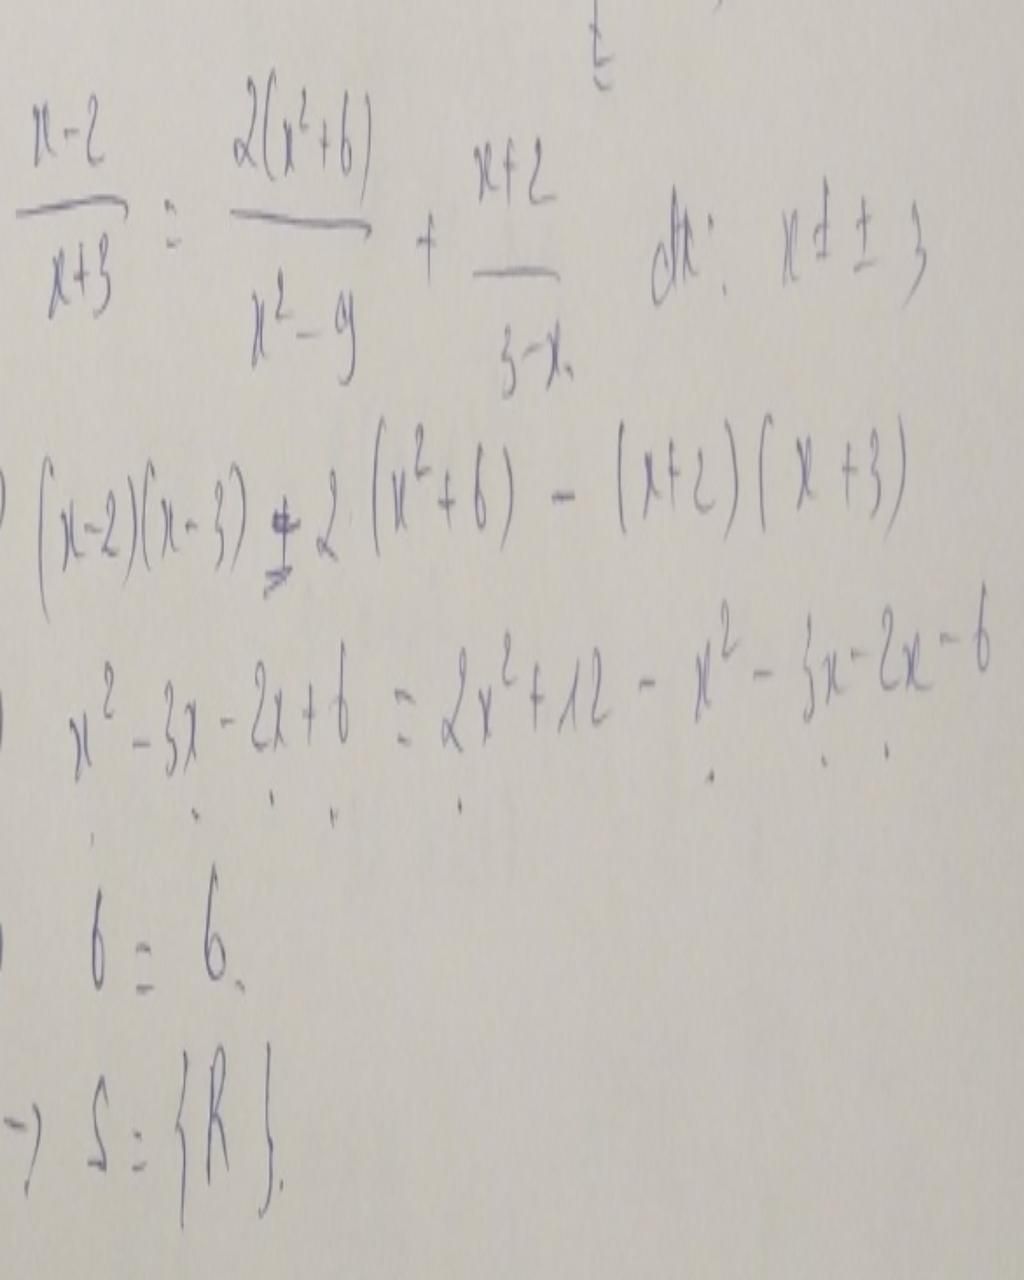 t
x-2/x+3 = 2(x²+6)/x²-9 + x+2/3-x. đk: x ≠ ± 3
(x-2)(x-3) = 2(x²+6) - (x+2)(x+3)
x² - 3x - 2x + 6 = 2x² + 12 - x² - 3x - 2x - 6
6 = 6.
→ S = {R}.